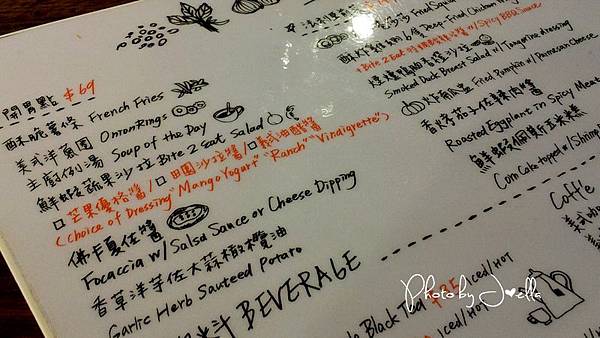 開胃點 $69
酥脆薯條 French Fries
美式洋蔥圈 Onion Rings
主廚例湯 Soup of the Day
鮮蝦蔬果沙拉 Bite 2 Eat Salad
芒果優格醬/ 田園沙拉醬/ 義式油醋醬
(Choice of Dressing "Mango Yogurt" "Ranch" "Vinaigrette")
佛卡夏佐醬
Focaccia w/ Salsa Sauce or Cheese Dipping
香草洋芋佐大蒜橄欖油
Garlic Herb Sauteed Potato
Fried Squid
Deep-Fried Chicken
+ Bite 2 Eat w/ Spicy BBQ Sauce
Smoked Duck Breast Salad w/ Tangerine dressing
炸南瓜 Fried Pumpkin w/ Parmesan Cheese
香烤茄子佐辣肉醬
Roasted Eggplant in Spicy Meat
Corn Cake topped w/ Shrimp
汁 BEVERAGE
Coffe
Black Tea $85 Iced/Hot
Iced/Hot
Photo by J♥ella